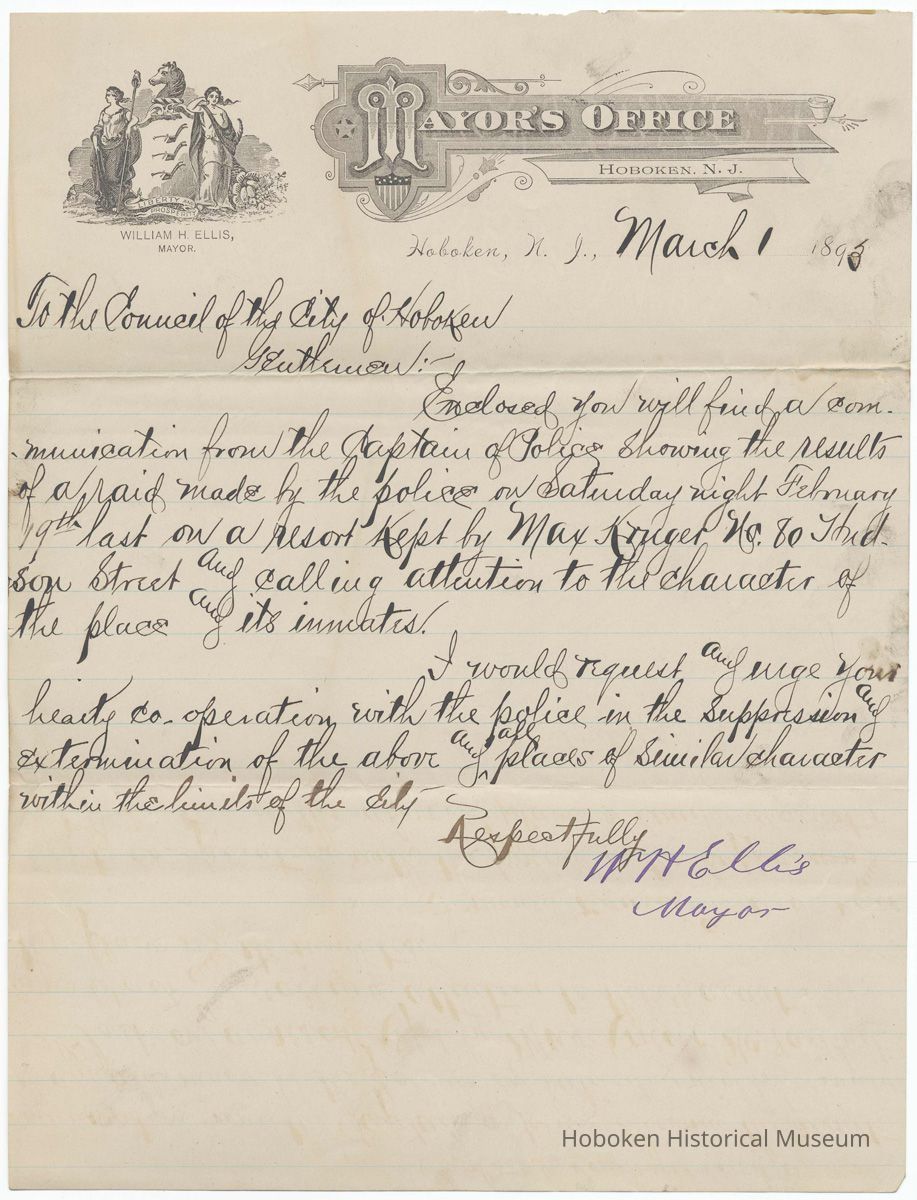 MAYOR'S OFFICE
HOBOKEN, N. J.
LIBERTY AND
PROSPERITY
WILLIAM H. ELLIS,
MAYOR.
Hoboken, N. J., March 1 1895
To the Council of the City of Hoboken
Gentlemen:-
Enclosed you will find a com-
-munication from the Captain of Police showing the results
of a raid made by the police on Saturday night February
19th last on a resort kept by Max Kruger No. 80 Hud-
son Street and calling attention to the character of
the place and its inmates.
I would request and urge your
hearty co-operation with the police in the suppression and
extermination of the above and all places of similar character
within the limits of the City
Respectfully
W H Ellis
Mayor
Hoboken Historical Museum